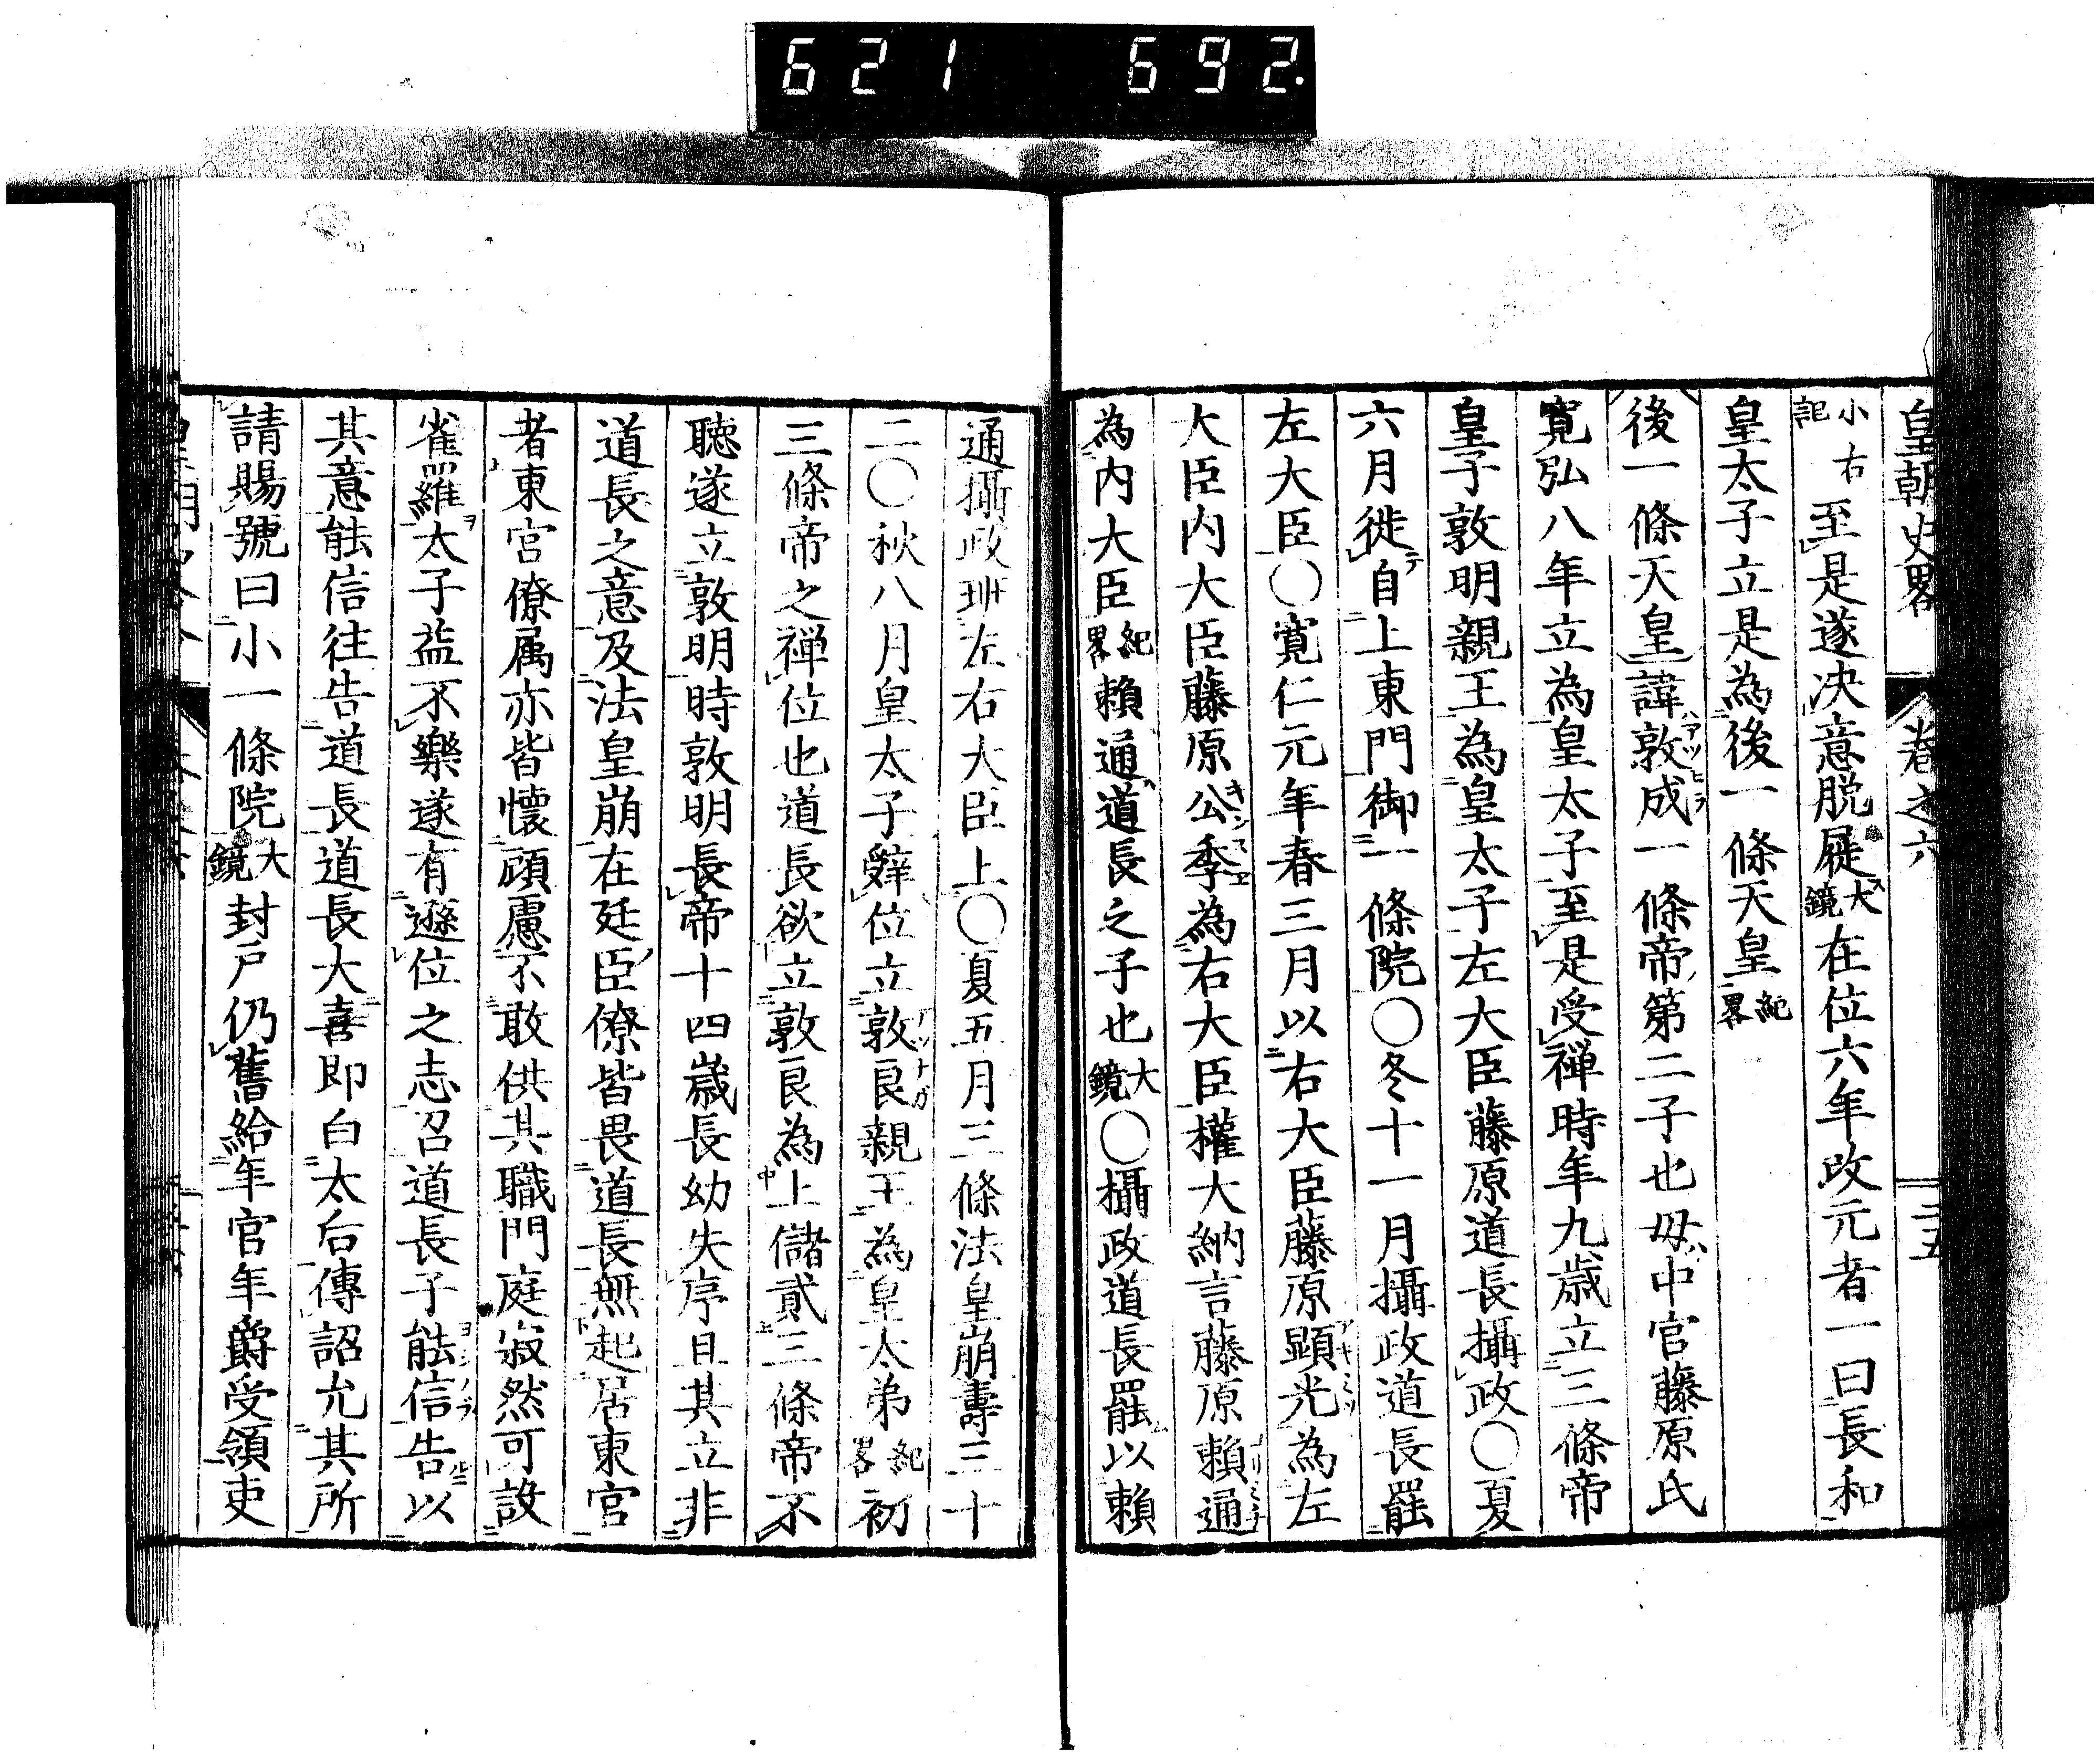 621 692.
皇朝史畧 卷之六 二五
小右記至是遂决意脱屣大鏡在位六年改元者一曰長和
皇太子立是為後一條天皇紀畧
後一條天皇諱敦成一條帝第二子也母中宮藤原氏
寛弘八年立為皇太子至是受禅時年九歳立三條帝
皇子敦明親王為皇太子左大臣藤原道長攝政〇夏
六月徙自上東門御一條院〇冬十一月攝政道長罷
左大臣〇寛仁元年春三月以右大臣藤原顯光為左
大臣内大臣藤原公季為右大臣權大納言藤原頼通
為内大臣紀畧頼通道長之子也大鏡〇攝政道長罷以頼
通攝政班左右大臣上〇夏五月三條法皇崩壽三十
二〇秋八月皇太子辤位立敦良親王為皇太弟紀畧初
三條帝之禅位也道長欲立敦良為上儲貳三條帝不
聴遂立敦明時敦明長帝十四歳長幼失序且其立非
道長之意及法皇崩在廷臣僚皆畏道長無起居東宮
者東宮僚属亦皆懐顧慮不敢供其職門庭寂然可設
雀羅太子益不樂遂有遜位之志召道長子能信告以
其意能信往告道長道長大喜即白太后傳詔允其所
請賜號曰小一條院大鏡封戸仍舊給年官年爵受領吏